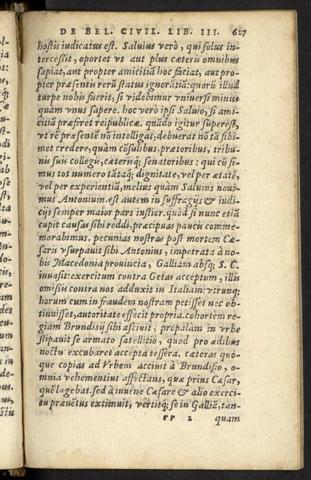 DE BEL. CIVIL. LIB. III. 627
hostis iudicatus est. Saluius verò, qui solus in-
tercessit, oportet vt aut plus cæteris omnibus
sapiat, aut propter amicitiā hoc faciat, aut pro-
pter præsentis rerū status ignorātiā: quorū illud
turpe nobis fuerit, si videbimur vniuersi minus
quàm vnus sapere. hoc verò ipsi Saluio, si ami-
citiā præfiret reipublicæ. quādo igitur superest,
vt rē præsentē nō intelligat, debuerat nō tā sibi-
met credere, quàm cōsulibus, prætoribus, tribu-
nis suis collegis, cæterisq; senatoribus: qui cū si-
mus tot numero tātaq; dignitate, vel per ætatē,
vel per experientiā, meliùs quàm Saluius noui-
mus Antonium. est autem in suffragijs & iudi-
cijs semper maior pars iustior. quòd si nunc etiā
cupit causas sibi reddi, præcipuas paucis comme-
morabimus. pecunias nostras post mortem Cæ-
saris vsurpauit sibi Antonius, impetrata à no-
bis Macedonia prouincia, Galliam absq; S. C.
inuasit: exercitum contra Getas acceptum, illis
omissis contra nos adduxit in Italiam: vtrunq;
horum cum in fraudem nostram petisset nec ob-
tinuisset, autoritate effecit propria. cohortem re-
giam Brundisij sibi asciuit, propalàm in vrbe
stipauit se armato satellitio, quod pro ædibus
noctu excubaret accepta tessera. cæteras quo-
que copias ad Vrbem acciuit à Brundisio, o-
mnia vehementius affectans, quæ prius Cæsar,
quē lugebat. sed à iuuene Cæsare & alio exerci-
tu præuētus extimuit, vertitq; se in Galliā, tan-
rr 2 quam